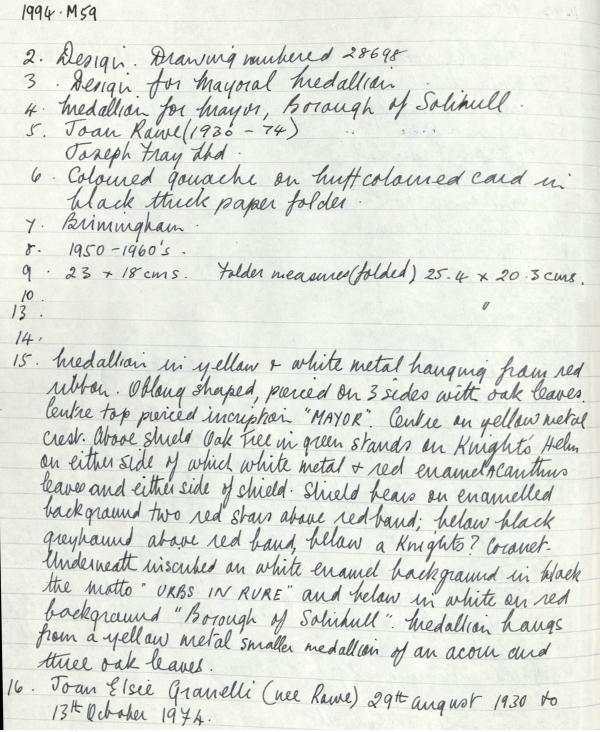 1994.M59
2. Design. Drawing numbered 28698
3. Design for Mayoral Medallion.
4. Medallion for Mayor, Borough of Solihull.
5. Joan Rawe (1930 - 74)
Joseph Fray Ltd.
6. Coloured gouache on buff coloured card in
black thick paper folder.
7. Birmingham.
8. 1950-1960's.
9. 23 x 18 cms. Folder measures (folded) 25.4 x 20.3 cms.
10.
13.
14.
15. Medallion in yellow & white metal hanging from red
ribbon. Oblong shaped, pierced on 3 sides with oak leaves.
Centre top pierced incription "MAYOR". Centre on yellow metal
crest. Above shield Oak Tree in green stands on Knight's Helm
on either side of which white metal & red enamel Acanthus
leaves and either side of shield. Shield bears on enamelled
background two red stars above red band; below black
greyhound above red band, below a Knights? Coronet.
Underneath inscribed on white enamel background in black
the motto "URBS IN RURE" and below in white on red
background "Borough of Solihull". Medallion hangs
from a yellow metal smaller medallion of an acorn and
three oak leaves.
16. Joan Elsie Granelli (nee Rawe) 29th August 1930 to
13th October 1974.